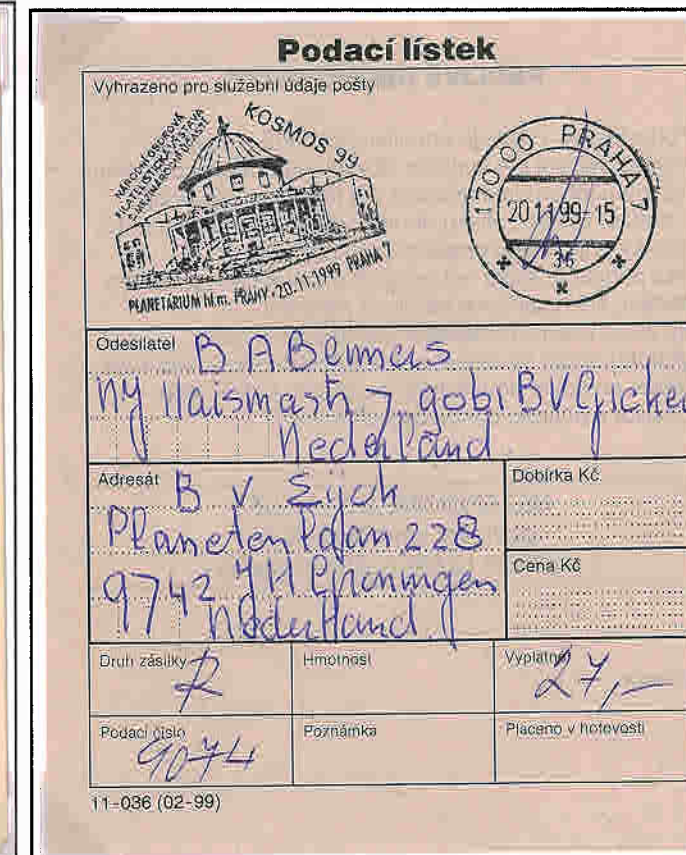 Podací lístek
Vyhrazeno pro služební údaje pošty
NÁRODNÍ OBOROVÁ
FILATELISTICKÁ VÝSTAVA
KOSMOS 99
PLANETÁRIUM hl.m. PRAHY · 20.11.1999 PRAHA 7
170 00 PRAHA 7
20 11 99-15
36
Odesilatel B A
7
Nederland
Adresát B v Eijck
Planetenlaan 228
9742 JH Groningen
Nederland
Dobírka Kč
Cena Kč
Druh zásilky R
Hmotnost
Výplatné 27,–
Podací číslo 9074
Poznámka
Placeno v hotovosti
11-036 (02-99)